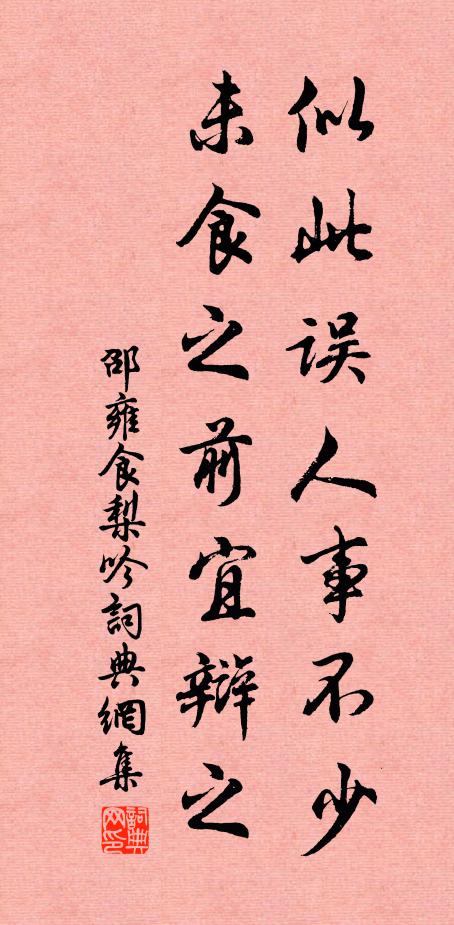 似此误人事不少
未食之前宜辩之
邵雍食梨吟詞典網集
詞典网印